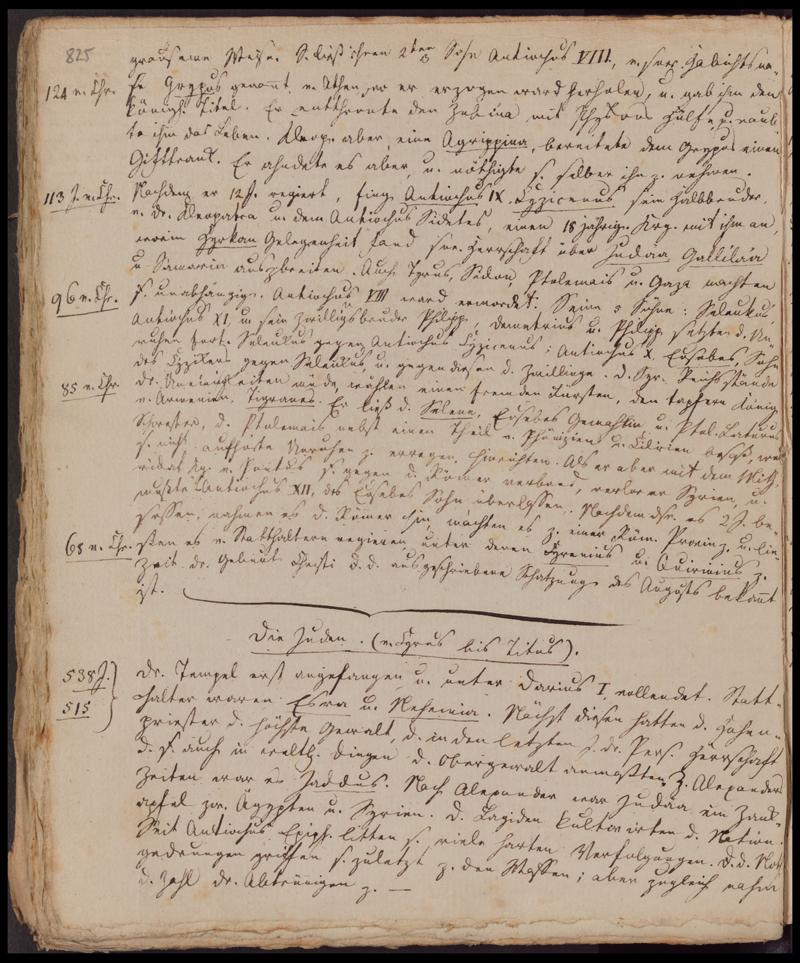 825
grausame Weise. S. ließ ihren 2ten Sohn Antiochus VIII, v. sr. Habichtsna-
124 v. Chr. se Grypus genannt, v. Athen, wo er erzogen ward herholen, u. gab ihm den
königl. Titel. Er entthronte den Zabina mit Physkons Hülfe, u. raub-
te ihm das Leben. Kleop. aber, eine Agrippina, bereitete dem Grypus einen
Gifttrank. Er ahndete es aber, u. nöthigte s. selber ihn z. nehmen.
113 J. v. Chr. Nachdem er 12 J. regiert, fing Antiochus IX. Cyzicenus sein Halbbruder,
v. dr. Kleopatra u. dem Antiochus Sidetes, einen 18 jährig. Krg. mit ihm an,
worin Hyrkan Gelegenheit fand sne. Herrschaft über Judäa, Galliläa
u. Samaria auszubreiten. Auch Tyrus, Sidon, Ptolemais u. Gaza machten
96 v. Chr. s. unabhängig. Antiochus VIII ward ermordet. Seine 5 Söhne: Seleukus,
Antiochus XI, u. sein Zwillingsbruder Philipp, Demetrius u. Philipp setzten d. Un-
ruhen fort. Seleukus gegen Antiochus Cyzicenus; Antiochus X. Eusebes, Sohn
des Cyzikers gegen Seleukus, u. gegen diesen d. Zwillinge. D. Syr. Reichsstände
85 v. Chr. dr. Uneinigkeiten müde, wählen einen fremden Fürsten, den tapfern König
v. Armenien, Tigranes. Er ließ d. Selene, Eusebes Gemahlin, u. Ptol. Laturus
Schwester, d. Ptolemais nebst einen Theil v. Phönizien u. Cilicien besaß, weil
s. nicht aufhörte Unruhen z. erregen, hinrichten. Als er aber mit dem Mith-
ridat Kg. v. Pontus s. gegen d. Römer verband, verlor er Syrien, u.
mußte Antiochus XII, des Eusebes Sohn überlassen. Nachdem dsr. es 2 J. be-
sessen, nahmen es d. Römer ihm, machten es z. einer Röm. Provinz u. lie-
65 v. Chr. ßen es v. Statthaltern regieren, unter denen Cyrenius u. Quirinius z.
Zeit dr. Geburt Christi d. d. ausgeschriebene Schatzung des Augusts bekannt
ist.
Die Juden. (v. Cyrus bis Titus).
538 J. Dr. Tempel erst angefangen u. unter Darius I vollendet. Statt-
515 halter waren Esra u. Nehemia. Nächst diesen hatten d. Hohen-
priester d. höchste Gewalt, d. in den letzten J. dr. Pers. Herrschaft
d. s. auch in weltl. Dingen d. Obergewalt anmaßten. Z. Alexanders
Zeiten war es Jaddus. Nach Alexander war Judäa ein Zank-
apfel zw. Ägypten u. Syrien. D. Lagiden kultivirten d. Nation.
Seit Antiochus Epiph. litten s. viele harten Verfolgungen. D. d. Noth
gedrungen griffen s. zuletzt z. den Waffen; aber zugleich nahm
d. Zahl dr. Abtrünnigen z. —